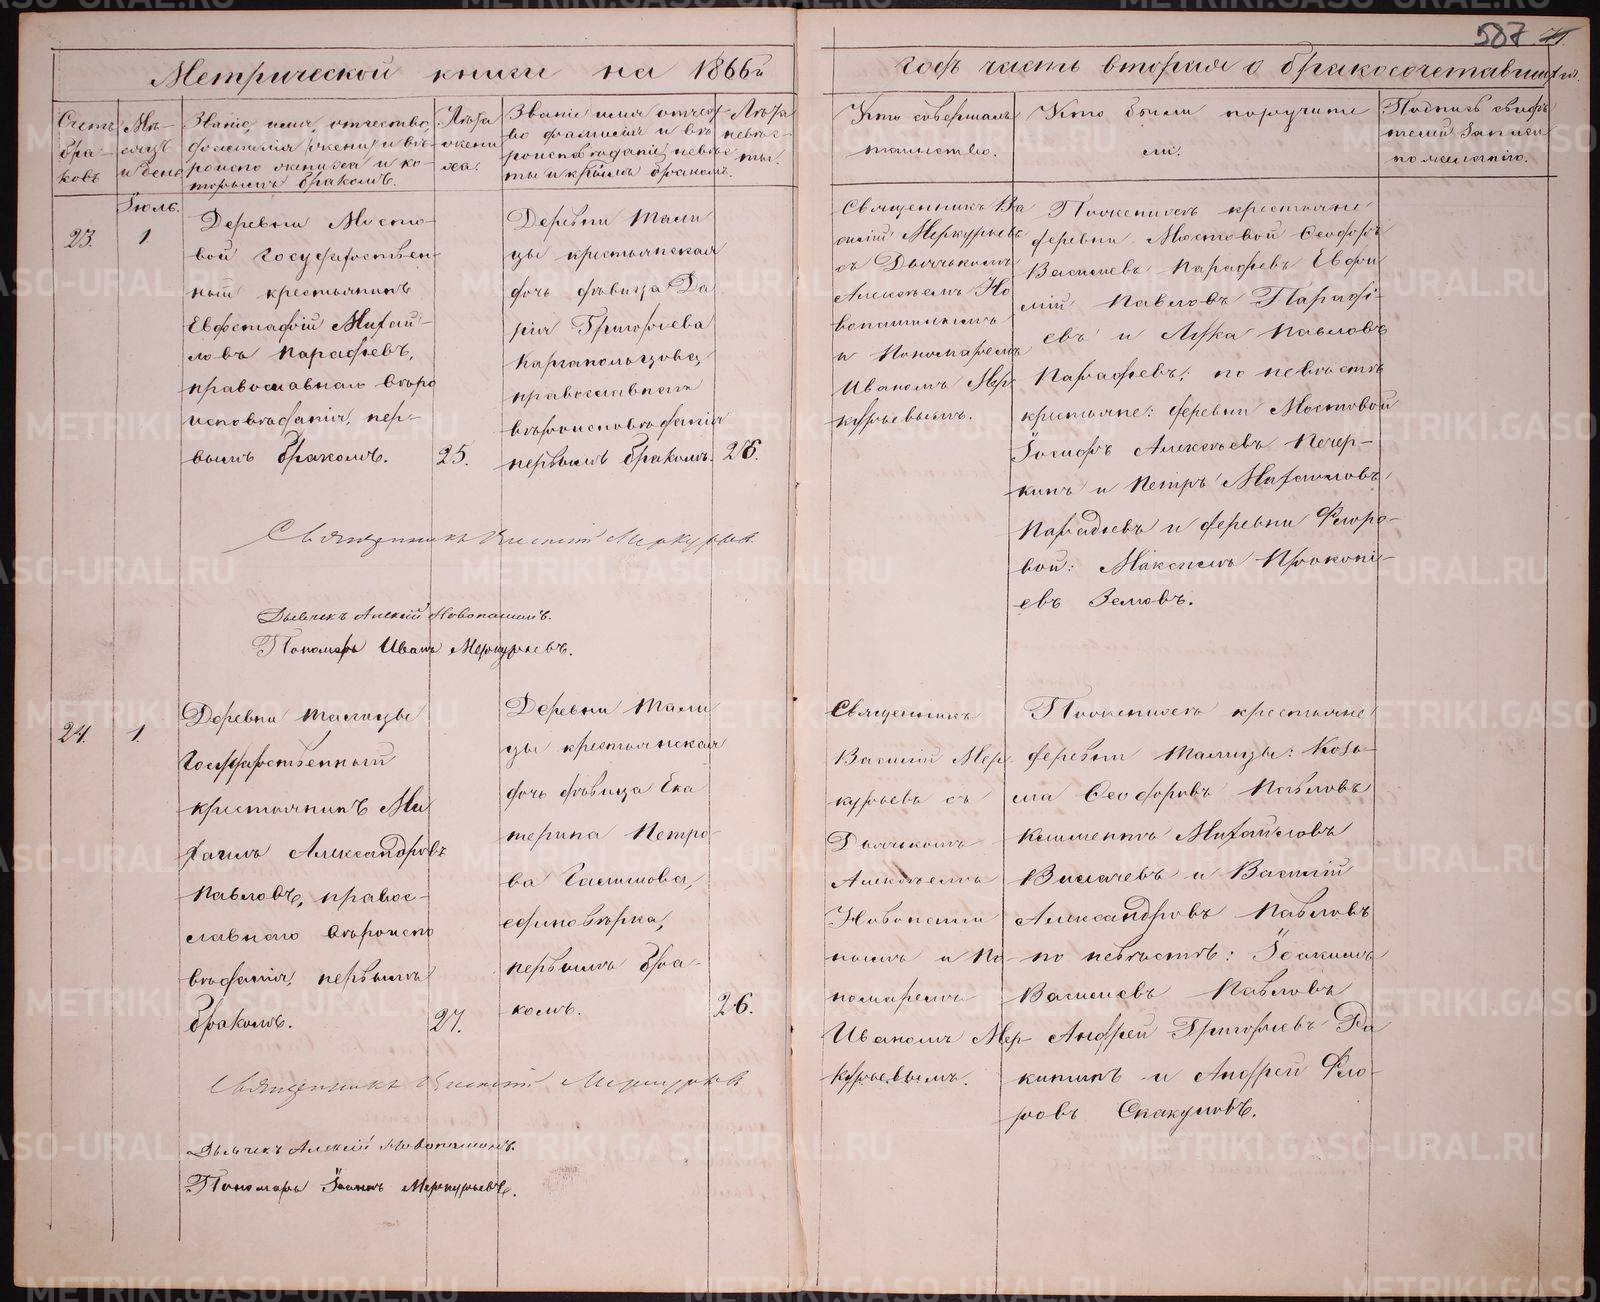 587
Метрической книги на 1866й
годъ часть вторая о бракосочетавшихся.
Счетъ
бра-
ковъ
Мѣ-
сяцъ
и день
Званіе, имя, отчество,
фамилія жениха и вѣ-
роиспо жениха и ко-
торымъ бракомъ.
Лѣта
жени
ха.
Званіе имя отчес
во фамилія и вѣ
роисповѣданіе невѣс
ты и крымъ бракомъ.
Лѣта
невѣс-
ты.
Кто совершалъ
таинство.
Кто были поручите
ли.
Подпись свидѣ
телей записи
по желанію.
Іюль.
23.
1
Деревни Мосто-
вой государствен-
ный крестьянинъ
Евдстафій Михай-
ловъ Парадѣевъ,
православнаго вѣро
исповѣданія, пер-
вымъ бракомъ.
25.
Деревни Тали
цы крестьянская
дочь дѣвица Да
рія Григорьева
Каргапольцова,
православнаго
вѣроисповѣданія
первымъ бракомъ.
26.
Священникъ Ва
силій Меркурьевъ
съ Дьячькомъ
Алексѣемъ Но
вопашинымъ
и Пономаремъ
Иваномъ Мер-
курьевымъ.
По женихѣ крестьяне
деревни Мостовой Ѳеодоръ
Васильевъ Парадѣевъ Евфи
мій Павловъ Парадѣ-
евъ и Лука Павловъ
Парадѣевъ; по невѣстѣ
крестьяне: деревни Мостовой
Іосифъ Алексѣевъ Печер-
кинъ и Петръ Михайловъ
Парадѣевъ и деревни Флоро-
вой: Максимъ Прокопі-
евъ Зелювъ.
Священникъ Василій Меркурьевъ
Дьячекъ Алексій Новопашинъ.
Пономарь Иванъ Меркурьевъ.
24.
1.
Деревни Талицы
Государственный
крестьянинъ Ми
хаилъ Александровъ
Павловъ, правос-
лавнаго вѣроиспо
вѣданія, первымъ
бракомъ.
27.
Деревни Тали
цы крестьянская
дочь дѣвица Ека
терина Петро-
ва Галимова,
единовѣрка,
первымъ бра-
комъ.
26.
Священникъ
Василій Мер-
курьевъ съ
Дьячькомъ
Алексѣемъ
Новопаши
нымъ и По-
номаремъ
Иваномъ Мер-
курьевымъ.
По женихѣ крестьяне
деревни Талицы: Козь-
ма Ѳеодоровъ Павловъ
Климентъ Михайловъ
Вилачевъ и Василій
Александровъ Павловъ
по невѣстѣ: Іоакимъ
Васильевъ Павловъ
Андрей Григорьевъ Ра
китинъ и Андрей Фло-
ровъ Скакуновъ.
Священникъ Василій Меркурьевъ
Дьячекъ Алексій Новопашинъ.
Пономарь Іоаннъ Меркурьевъ.
METRIKI.GASO-URAL.RU